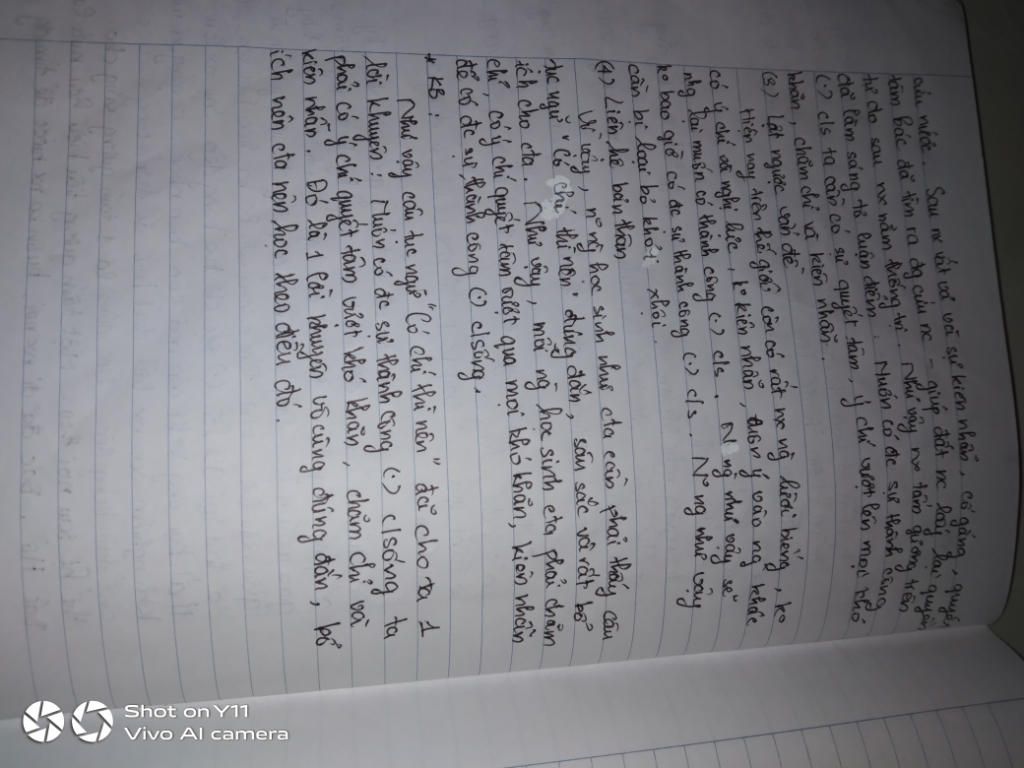 cứu nước. Sau nc vất vả và sự kiên nhẫn, cố gắng, quyết
tâm Bác đã tìm ra đg cứu nc - giúp đất nc lấy lại quyền
tự do sau nc năm thống trị. Như vậy nc tấm gương trên
đã làm sáng tỏ luận điểm. Muốn có đc sự thành công
(.) c/s ta cần có sự quyết tâm, ý chí vượt lên mọi khó
khăn, chăm chỉ và kiên nhẫn.
(e) Lật ngược vấn đề
Hiện nay trên thế giới còn có rất nc ng lười biếng, ko
có ý chí và nghị lực, ko kiên nhẫn, dựa ý vào ng khác
nhg lại muốn có thành công (.) c/s. N ng như vậy sẽ
ko bao giờ có đc sự thành công (.) c/s. N ng như vậy
cần bị loại bỏ khỏi xhội.
(+) Liên hệ bản thân
Vì vậy, n ng học sinh như cta cần phải thấy câu
tục ngữ "Có chí thì nên" đúng đắn, sâu sắc và rất bổ
ích cho cta. Như vậy, mỗi ng học sinh cta phải chăm
chỉ, có ý chí quyết tâm vượt qua mọi khó khăn, kiên nhẫn
để có đc sự thành công (.) c/sống.
* KB:
Như vậy câu tục ngữ "Có chí thì nên" đã cho ta 1
lời khuyên: Muốn có đc sự thành công (.) c/sống ta
phải có ý chí quyết tâm vượt khó khăn, chăm chỉ và
kiên nhẫn. Đó là 1 lời khuyên vô cùng đúng đắn, bổ
ích nên cta nên học theo điều đó.
Shot on Y11
Vivo AI camera